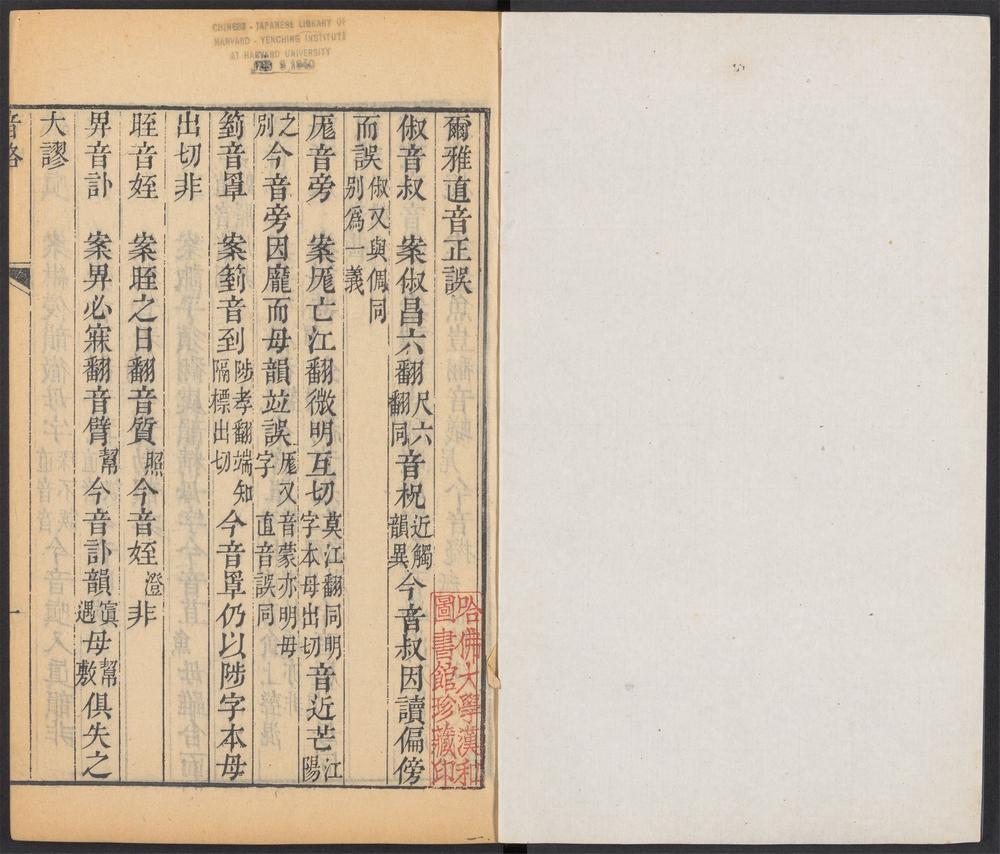 CHINESE - JAPANESE LIBRARY OF
HARVARD - YENCHING INSTITUTE
AT HARVARD UNIVERSITY
爾雅直音正誤
俶音叔　案俶昌六翻尺六翻同音柷近觸韻異今音叔因讀偏傍
而誤俶又與倜同別爲一義
厖音旁　案厖亡江翻微明互切莫江翻同明字本母出切音近芒江陽
之別今音旁因龐而母韻竝誤厖又音蒙亦明母字直音誤同
箌音罩　案箌音到陟孝翻端知隔標出切今音罩仍以陟字本母
出切非
晊音姪　案晊之日翻音質照今音姪澄非
畀音訃　案畀必寐翻音臂幫今音訃韻寘遇母幫敷俱失之
大謬
一
哈佛大學漢和
圖書館珍藏印